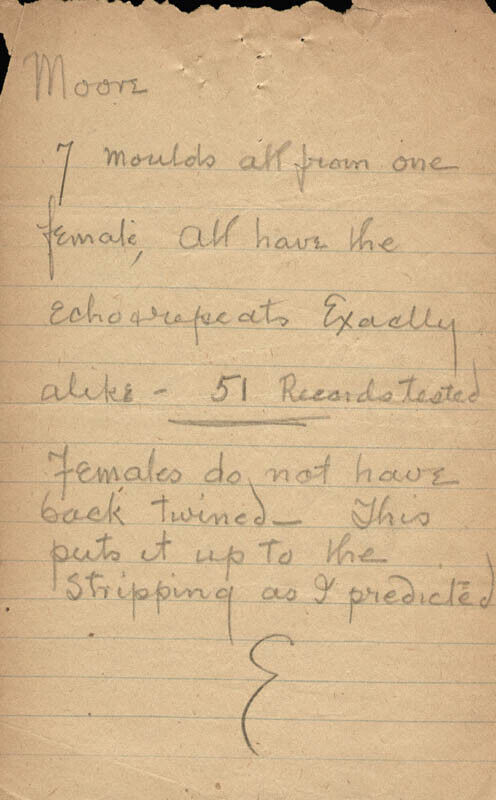 Moore
7 moulds all from one
female, all have the
echo & repeats Exactly
alike - 51 Records tested
Females do not have
back twined - This
puts it up to the
stripping as I predicted
E